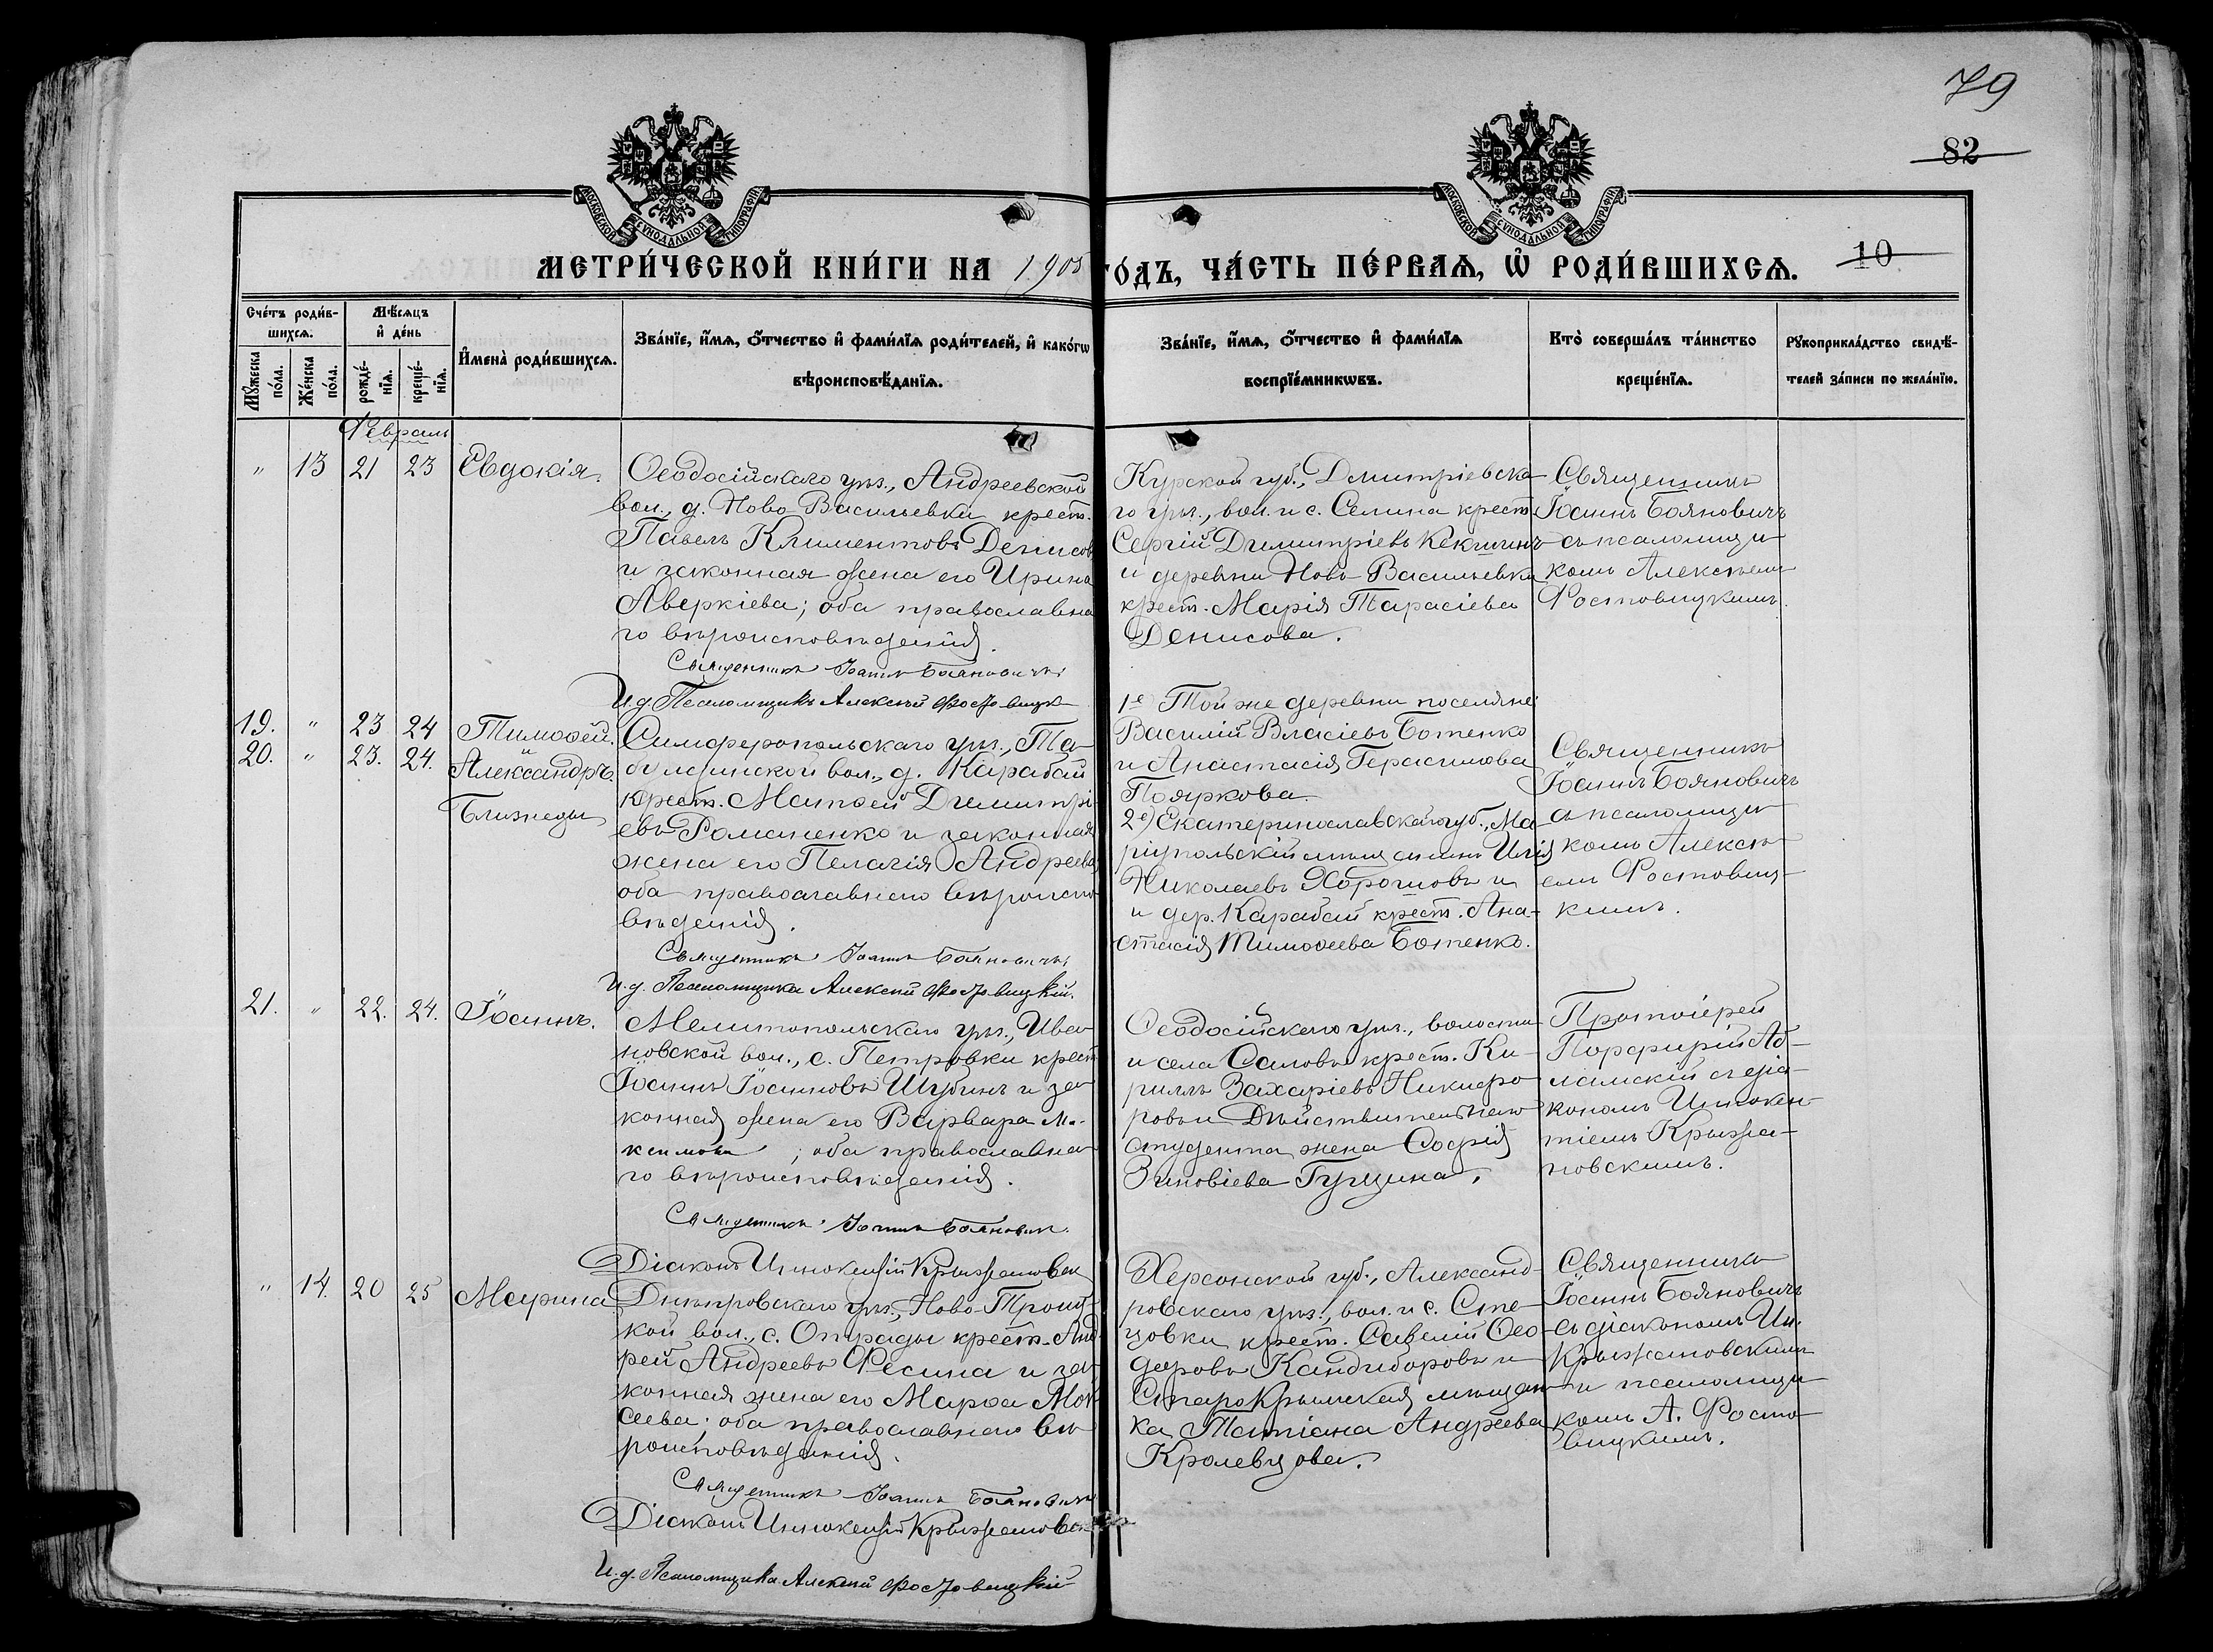 79
82
МОСКОВСКОЙ СѴНОДАЛЬНОЙ ТИПОГРАФІИ
МОСКОВСКОЙ СѴНОДАЛЬНОЙ ТИПОГРАФІИ
МЕТРИ́ЧЕСКОЙ КНИ́ГИ НА 1905
ГО́ДЪ, ЧА́СТЬ ПЕ́РВАѦ, Ѡ҆ РОДИ́ВШИХСѦ.
10
Сче́тъ роди́в-
шихсѧ.
Мꙋ́жеска
по́ла.
Же́нска
по́ла.
Мѣ́сѧцъ
и҆ де́нь
рожде́-
нїѧ.
креще́-
нїѧ.
И҆мена̀ роди́вшихсѧ.
Зва́нїе, и҆́мѧ, ѻ҆́тчество и҆ фами́лїѧ роди́телей, и҆ како́гѡ
вѣроисповѣ́данїѧ.
Зва́нїе, и҆́мѧ, ѻ҆́тчество и҆ фами́лїѧ
воспрїе́мникѡвъ.
Кто̀ соверша́лъ та́инство
креще́нїѧ.
Рꙋкоприкла́дство свидѣ́-
телей за́писи по жела́нїю.
Февраль
" 13 21 23 Евдокія.
Ѳеодосійскаго уѣз., Андреевской
вол., д. Ново-Васильевки крест.
Павелъ Климентовъ Денисовъ
и законная жена его Ирина
Аверкіева; оба православна
го вѣроисповѣданія.
Священникъ Іоаннъ Бояновичъ
И.д. Псаломщика Алексѣй Фостовицк
Курской губ., Дмитріевска-
го уѣз., вол. и с. Селина крест.
Сергій Димитріевъ Кекшинъ
и деревни Ново-Васильевки
крест. Марія Тарасіева
Денисова.
Священникъ
Іоаннъ Бояновичъ
съ псаломщи-
комъ Алексѣемъ
Фостовицкимъ.
19. " 23 24 Тимоѳей.
20. " 23. 24. Александръ
Близнецы
Симферопольскаго уѣз., Та-
булдинской вол., д. Карабай
крест. Матѳей Димитрі-
евъ Романенко и законная
жена его Пелагія Андреева
оба православнаго вѣроиспо-
вѣданія.
Священникъ Іоаннъ Бояновичъ
И.д. Псаломщика Алексѣй Фостовицкій.
1е Той же деревни поселяне
Василій Власіевъ Ботенко
и Анастасія Герасимова
Пояркова.
2е) Екатеринославской губ., Ма-
ріупольскій мѣщанинъ Илія
Николаевъ Хорошовъ и
и дер. Карабай крест. Ана-
стасія Тимоѳеева Ботенко.
Священникъ
Іоаннъ Бояновичъ
съ псаломщи-
комъ Алексѣ-
емъ Фостовиц-
кимъ.
21. " 22. 24. Іоаннъ.
Мелитопольскаго уѣз., Ива-
новской вол., с. Петровки крест.
Іоаннъ Іоанновъ Шубинъ и за-
конная жена его Варвара Ма-
ксимова; оба православна-
го вѣроисповѣданія.
Священникъ Іоаннъ Бояновичъ.
Діаконъ Иннокентій Крыжановск
Ѳеодосійскаго уѣз., волости
и села Саловъ крест. Ки-
риллъ Захаріевъ Никифо-
ровъ и Дѣйствительнаго
студента жена Софія
Зиновіева Гущина.
Протоіерей
Порфирій Аб-
ламскій съ діа-
кономъ Иннокен-
тіемъ Крыжа-
новскимъ.
" 14. 20 25 Марина
Днѣпровскаго уѣз., Ново-Троиц-
кой вол., с. Отрады крест. Анд-
рей Андреевъ Фесина и за-
конная жена его Марѳа Мои-
сеева; оба православнаго вѣ-
роисповѣданія.
Священникъ Іоаннъ Бояновичъ
Діаконъ Иннокентій Крыжановск
И.д. Псаломщика Алексѣй Фостовицкій
Херсонской губ., Александ-
ровскаго уѣз., вол. и с. Сте-
цовки крест. Савелій Ѳео-
доровъ Кандиборовъ и
Старокрымская мѣщан-
ка Татіана Андреева
Кролевцова.
Священникъ
Іоаннъ Бояновичъ
съ діакономъ Ин.
Крыжановскимъ
и псаломщи-
комъ А. Фосто-
вицкимъ.